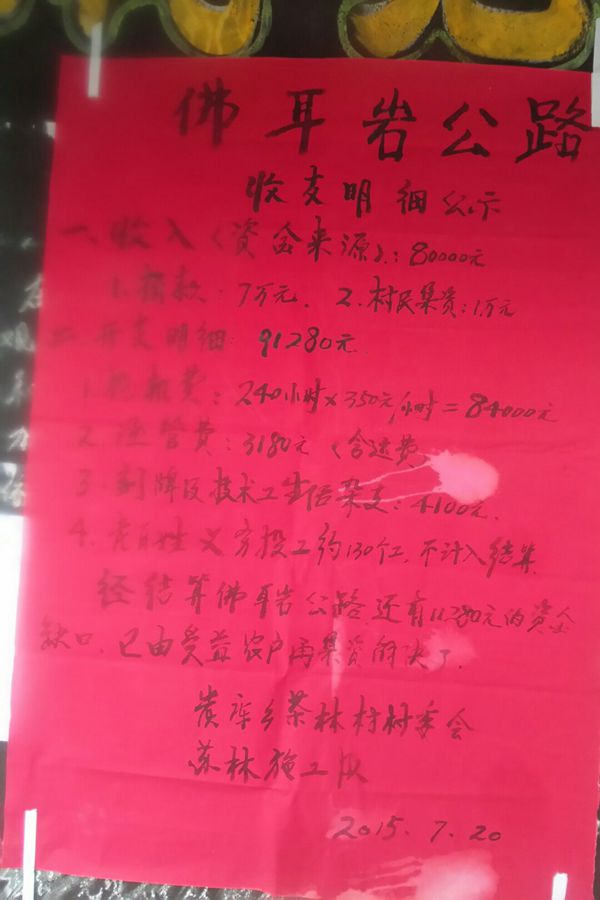 佛耳岩公路
收支明细公示
一、收入(资金来源):80000元
1.捐款:7万元、2.村民集资:1万元
二、开支明细:91280元
1.挖机费:240小时×350元/小时=84000元
2.涵管费:3180元(含运费)
3.刻牌及技术工生活杂支:4100元.
4.老百姓义务投工约130个工,不计入结算.
经结算佛耳岩公路,还有11280元的资金
缺口,已由受益农户再集资解决了.
炭库乡茶林村村委会
苏林施工队
2015.7.20